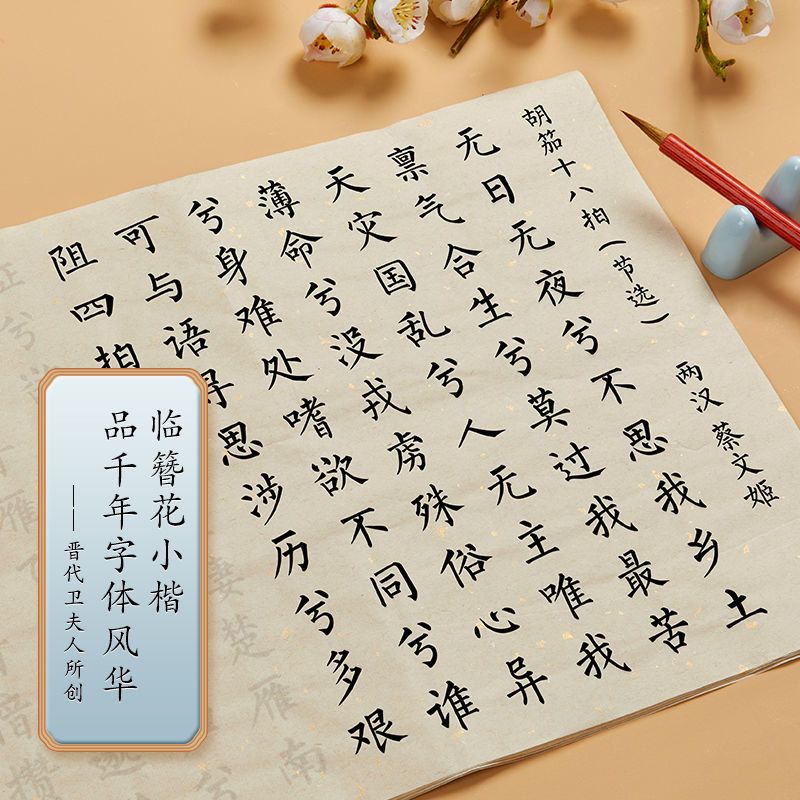 胡笳十八拍(节选) 两汉 蔡文姬
无日无夜兮不思我乡土
禀气合生兮莫过我最苦
天灾国乱兮人无主唯我
薄命兮没戎虏殊俗心异
兮身难处嗜欲不同兮谁
可与语寻思涉历兮多艰
阻四拍
临簪花小楷
品千年字体风华
——晋代卫夫人所创